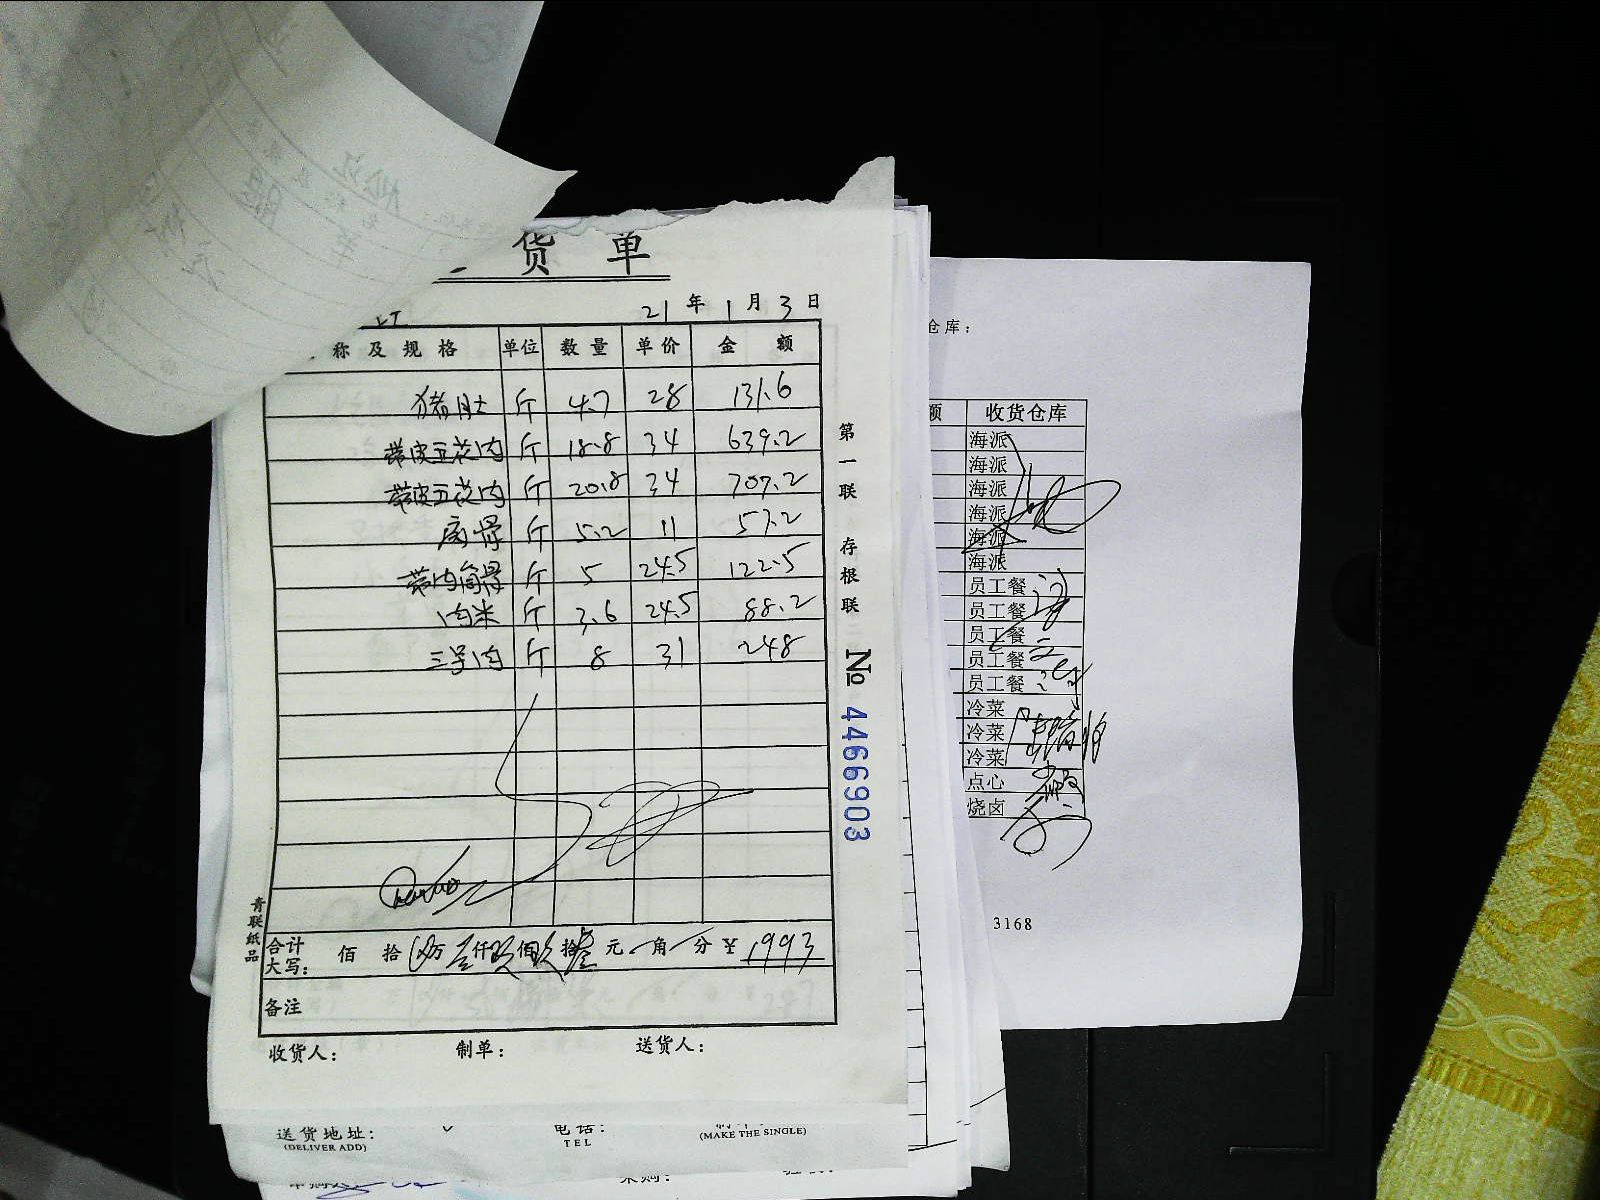 货 单
21 年 1 月 3 日
称 及 规 格 单位 数 量 单 价 金 额
猪肚 斤 4.7 28 131.6
带皮五花肉 斤 18.8 34 639.2
带皮五花肉 斤 20.8 34 707.2
斤 5.2 11 57.2
带肉 斤 5 24.5 122.5
肉米 斤 3.6 24.5 88.2
三号肉 斤 8 31 248
合计大写: 佰 拾 万 壹仟玖佰玖拾叁元 角 分 ¥ 1993
备注
收货人: 制单: 送货人:
第一联 存根联
№ 4466903
青联纸品
送货地址: 电话:
(DELIVER ADD) TEL (MAKE THE SINGLE)
采购:
仓库:
额 收货仓库
海派
海派
海派
海派
海派
海派
员工餐
员工餐
员工餐
员工餐
员工餐
冷菜
冷菜
冷菜
点心
烧卤
3168